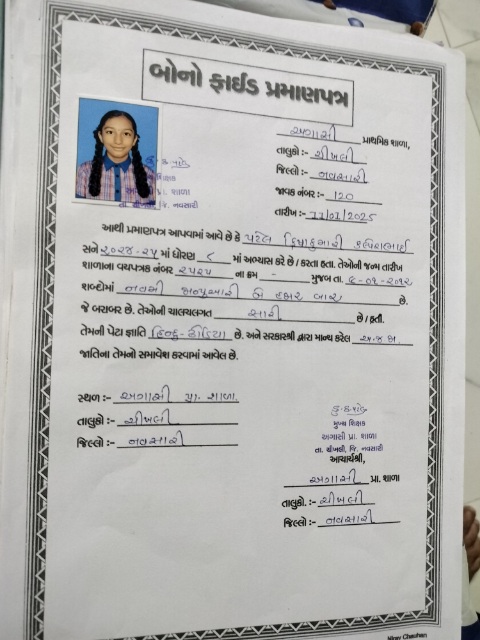 બોનો ફાઈડ પ્રમાણપત્ર
અગાસી પ્રાથમિક શાળા,
તાલુકો :- ચીખલી
જિલ્લો :- નવસારી
જાવક નંબર :- 120
તારીખ :- 
શિક્ષક
પ્રા. શાળા
જિ. નવસારી
આથી પ્રમાણપત્ર આપવામાં આવે છે કે પટેલ
સને ૨૦૨૪-૨૫ માં ધોરણ ૮ માં અભ્યાસ કરે છે / કરતા હતા. તેઓની જન્મ તારીખ
શાળાના વયપત્રક નંબર ૨૫૨૫ ના ક્રમ - મુજબ તા. ૯-૦૧-૨૦૧૨
શબ્દોમાં નવમી જાન્યુઆરી બે હજાર બાર છે.
જે બરાબર છે. તેઓની ચાલચલગત સારી છે / હતી.
તેમની પેટા જ્ઞાતિ હિન્દુ-ધોડિયા છે. અને સરકારશ્રી દ્વારા માન્ય કરેલ અ.જ.જા.
જાતિના તેમનો સમાવેશ કરવામાં આવેલ છે.
સ્થળ :- અગાસી પ્રા. શાળા
તાલુકો :- ચીખલી
જિલ્લો :- નવસારી
મુખ્ય શિક્ષક
અગાસી પ્રા. શાળા
તા. ચીખલી, જિ. નવસારી
આચાર્યશ્રી,
અગાસી પ્રા. શાળા
તાલુકો. :- ચીખલી
જિલ્લો :- નવસારી
Vijay Chauhan